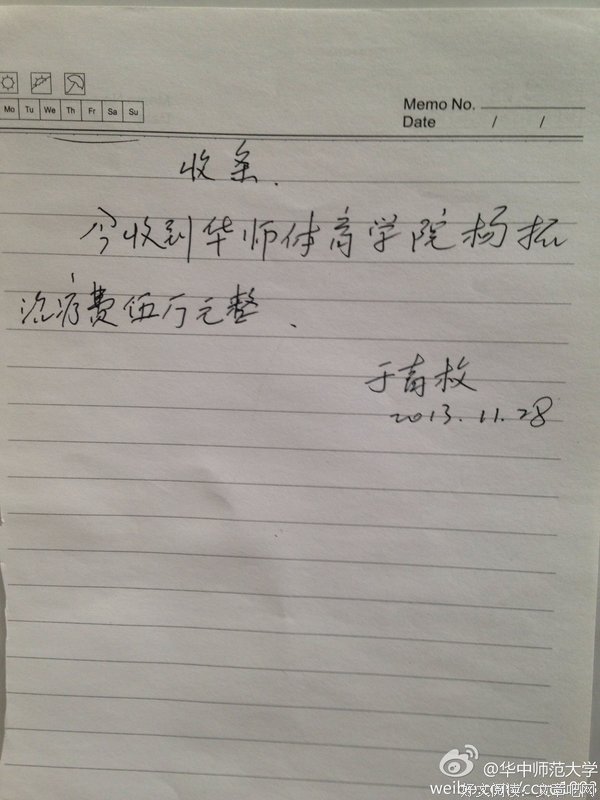 Mo Tu We Th Fr Sa Su
Memo No.
Date / /
收条.
今收到华师体育学院杨拓
治疗费伍万元整.
2013.11.28
@华中师范大学